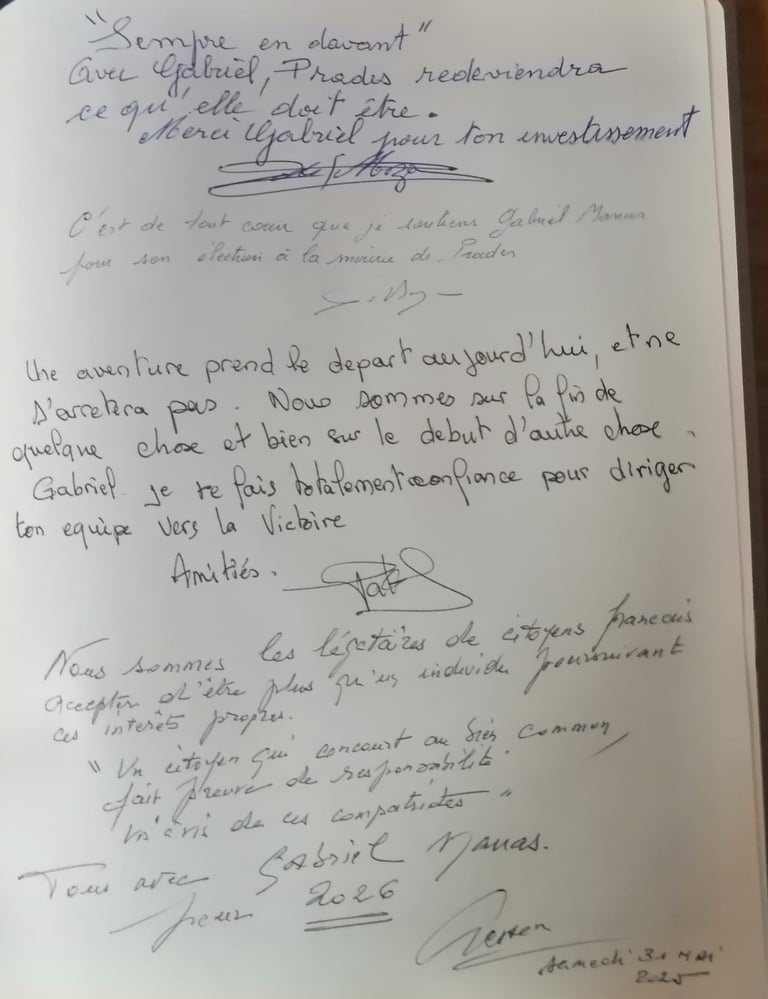 "Sempre en davant"
Avec Gabriel, Prades redeviendra
ce qu'elle doit être.
Merci Gabriel pour ton investissement
C'est de tout coeur que je soutiens Gabriel Manas
pour son élection à la mairie de Prades
Une aventure prend le depart aujourd'hui, et ne
s'arretera pas. Nous sommes sur la fin de
quelque chose et bien sur le debut d'autre chose.
Gabriel je te fais totalement confiance pour diriger
ton equipe vers la Victoire
Amitiés.
Pat
Nous sommes les légataires de citoyens francais
accepter d'être plus qu'un individu poursuivant
ces intérêts propres.
"Un citoyen qui concourt au bien commun,
fait preuve de responsabilité
vis de ces compatriotes"
Tous avec Gabriel Manas.
pour 2026
samedi 31 MAI
2025